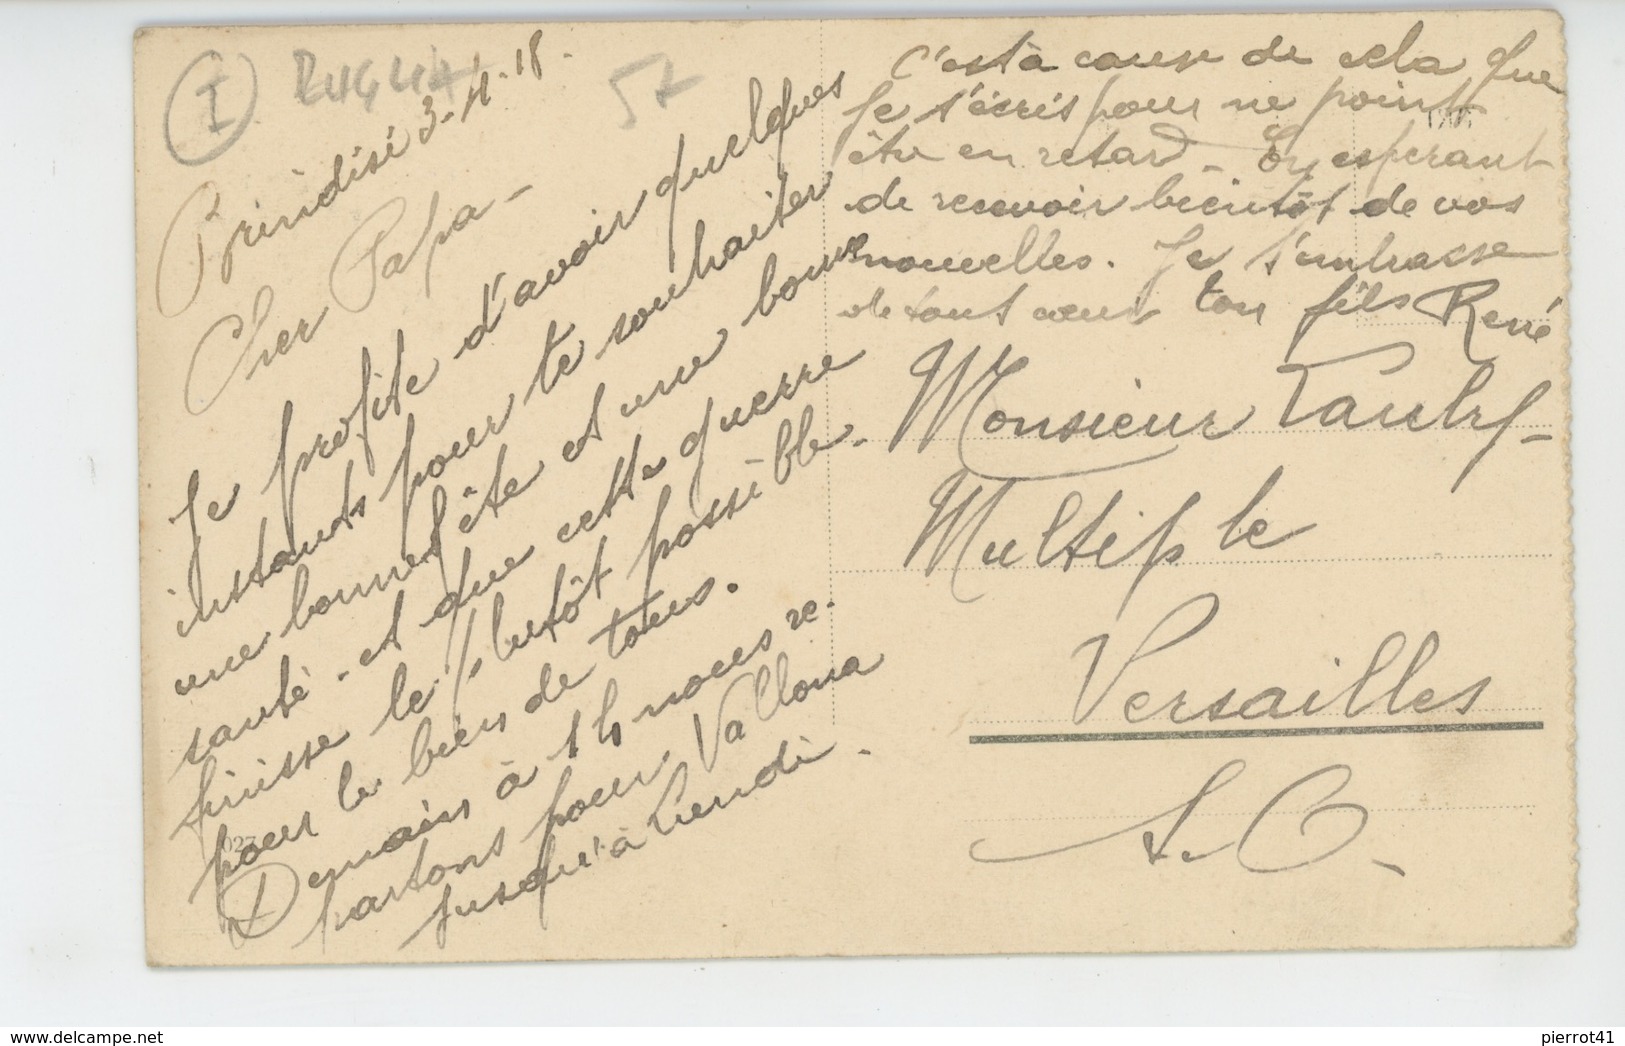 I
PUGLIA
57
Brindisi 3-4-18.
Cher Papa -
Je profite d'avoir quelques
instants pour te souhaiter
une bonne fête et une bonne
santé - et que cette guerre
finisse le plutôt possible.
pour le bien de tous.
Demain à 1 h nous re-
partons pour Vallona
jusqu'à Lundi.
c'est à cause de cela que
Je t'écris pour ne point
être en retard - En espérant
de recevoir bientôt de vos
nouvelles. Je t'embrasse
de tout cœur ton fils René
Monsieur
Multiple
Versailles
S.O.
pierrot41